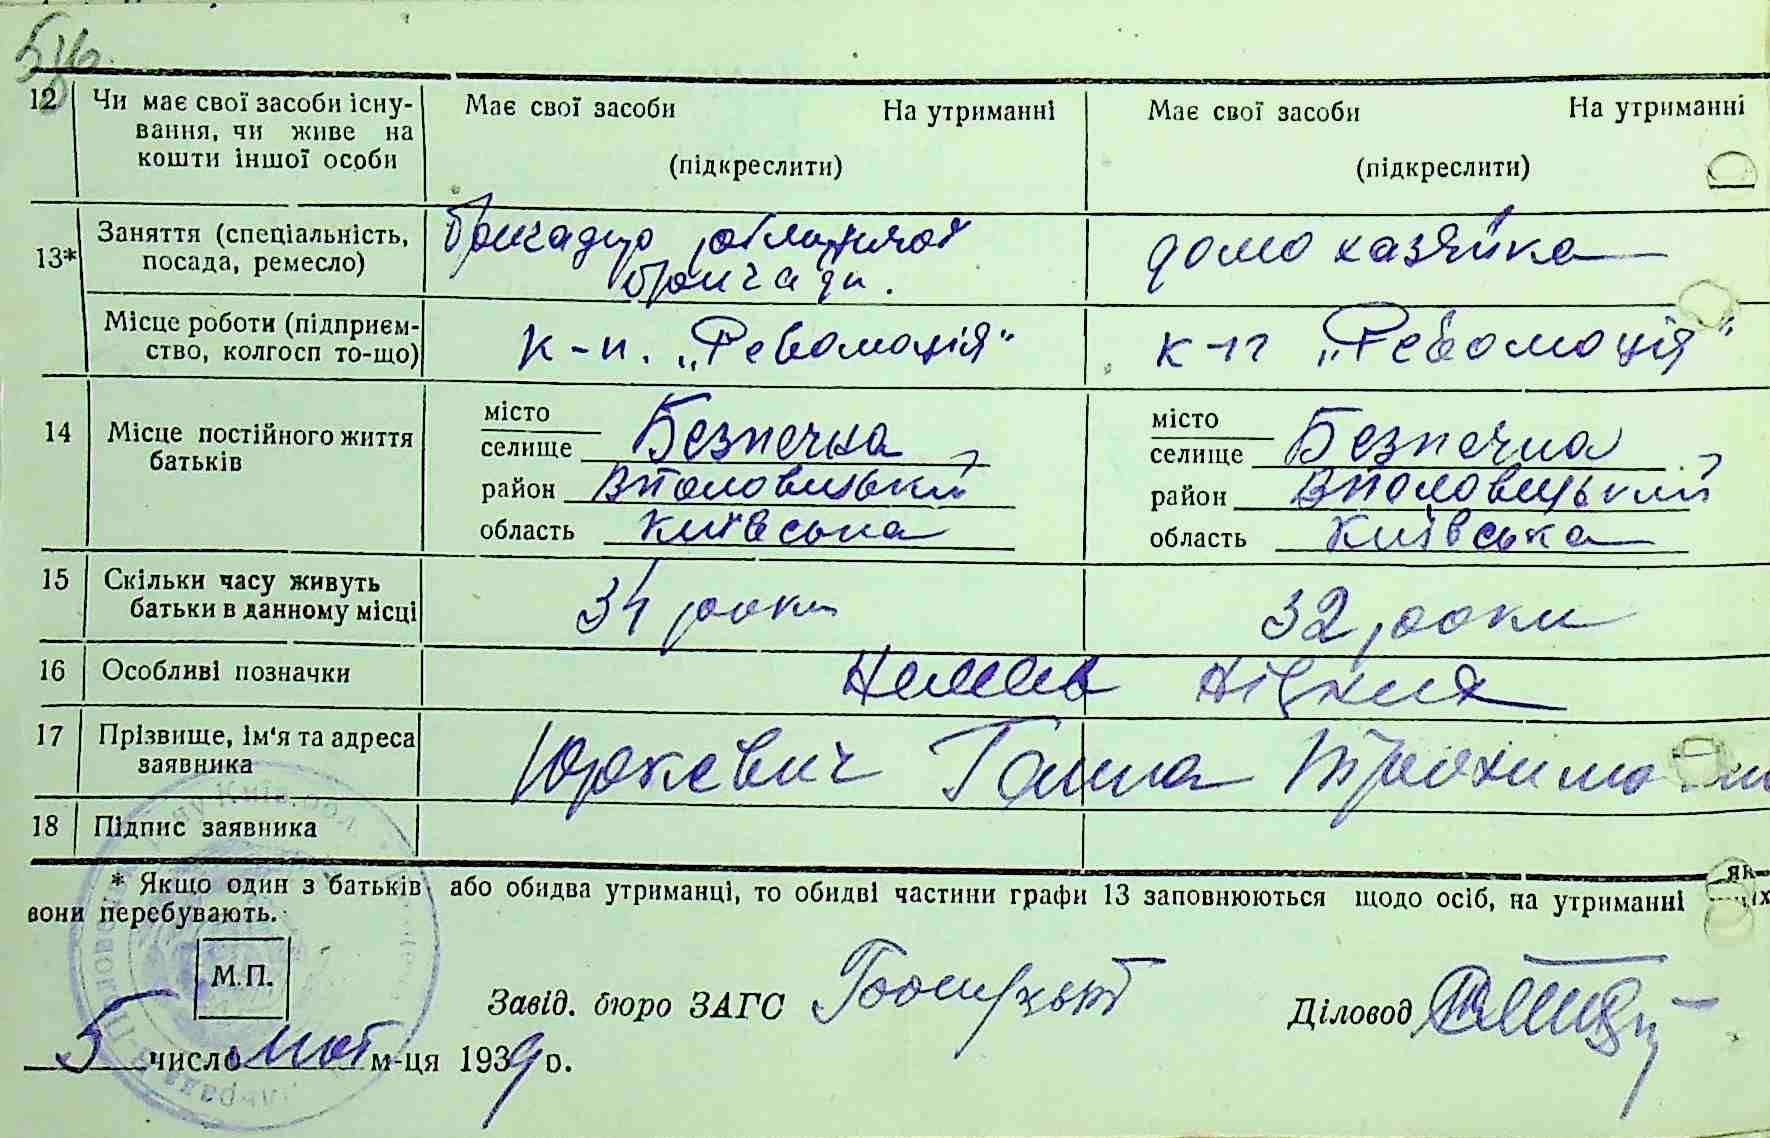 12 Чи має свої засоби існу- Має свої засоби На утриманні Має свої засоби На утриманні
вання, чи живе на
кошти іншої особи (підкреслити) (підкреслити)
13* Заняття (спеціальність, бригадир домо хазяйка
посада, ремесло) бригади.
Місце роботи (підприєм- к-п. „Революція" к-п „Революція"
ство, колгосп то-що)
14 Місце постійного життя місто місто
батьків селище Безпечна селище Безпечна
район район
область київська область київська
15 Скільки часу живуть 34 роки 32 роки
батьки в данному місці
16 Особливі позначки Немає ніяких
17 Прізвище, ім'я та адреса Юркевич Ганна
заявника
18 Підпис заявника
* Якщо один з батьків або обидва утриманці, то обидві частини графи 13 заповнюються щодо осіб, на утриманні як-
вони перебувають.
М.П.
Завід. бюро ЗАГС Діловод
5 число м-ця 1939 о.